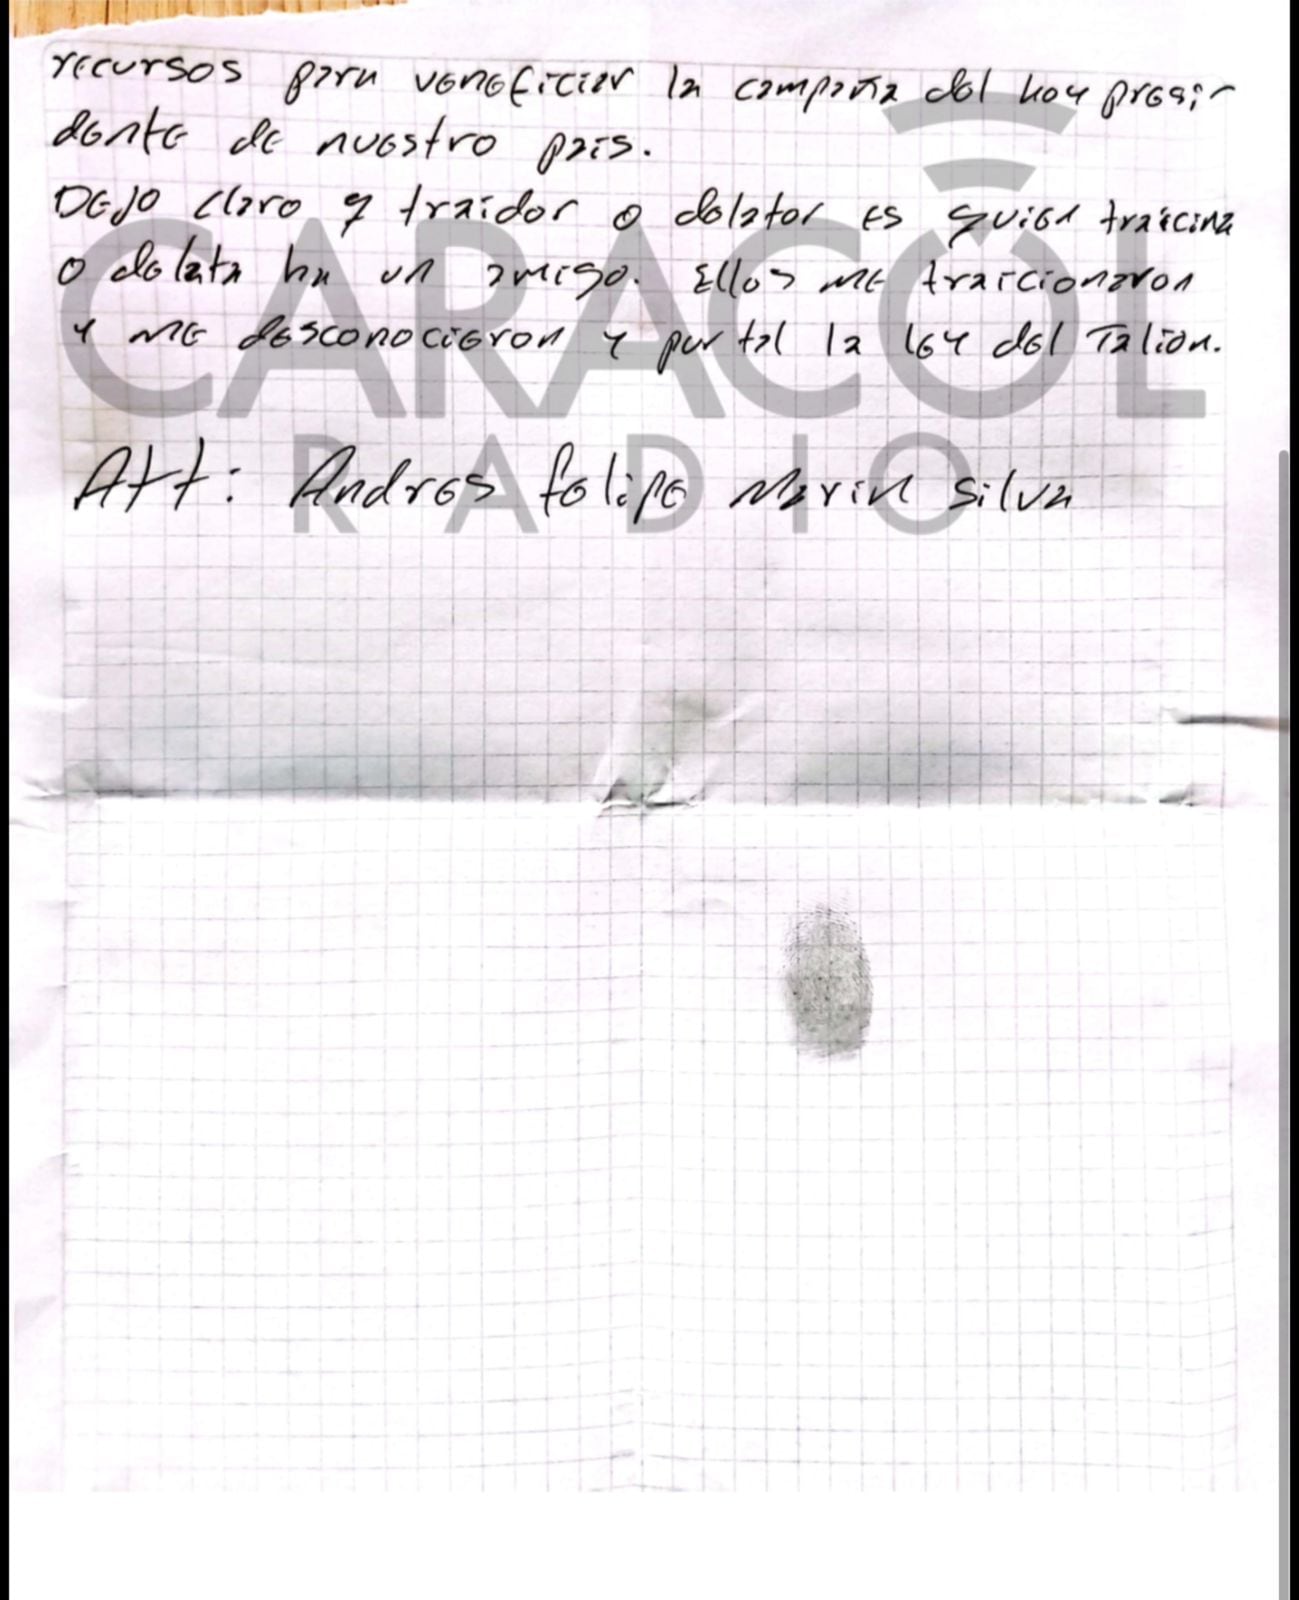 recursos para veneficiar la campaña del hoy presi-
dente de nuestro pais.
Dejo claro q traidor o delator es quien traicina
o delata ha un amigo. Ellos me traicionaron
y me desconocieron y por tal la ley del Talion.
CARACOL
RADIO
Att: Andres felipe Marin silva